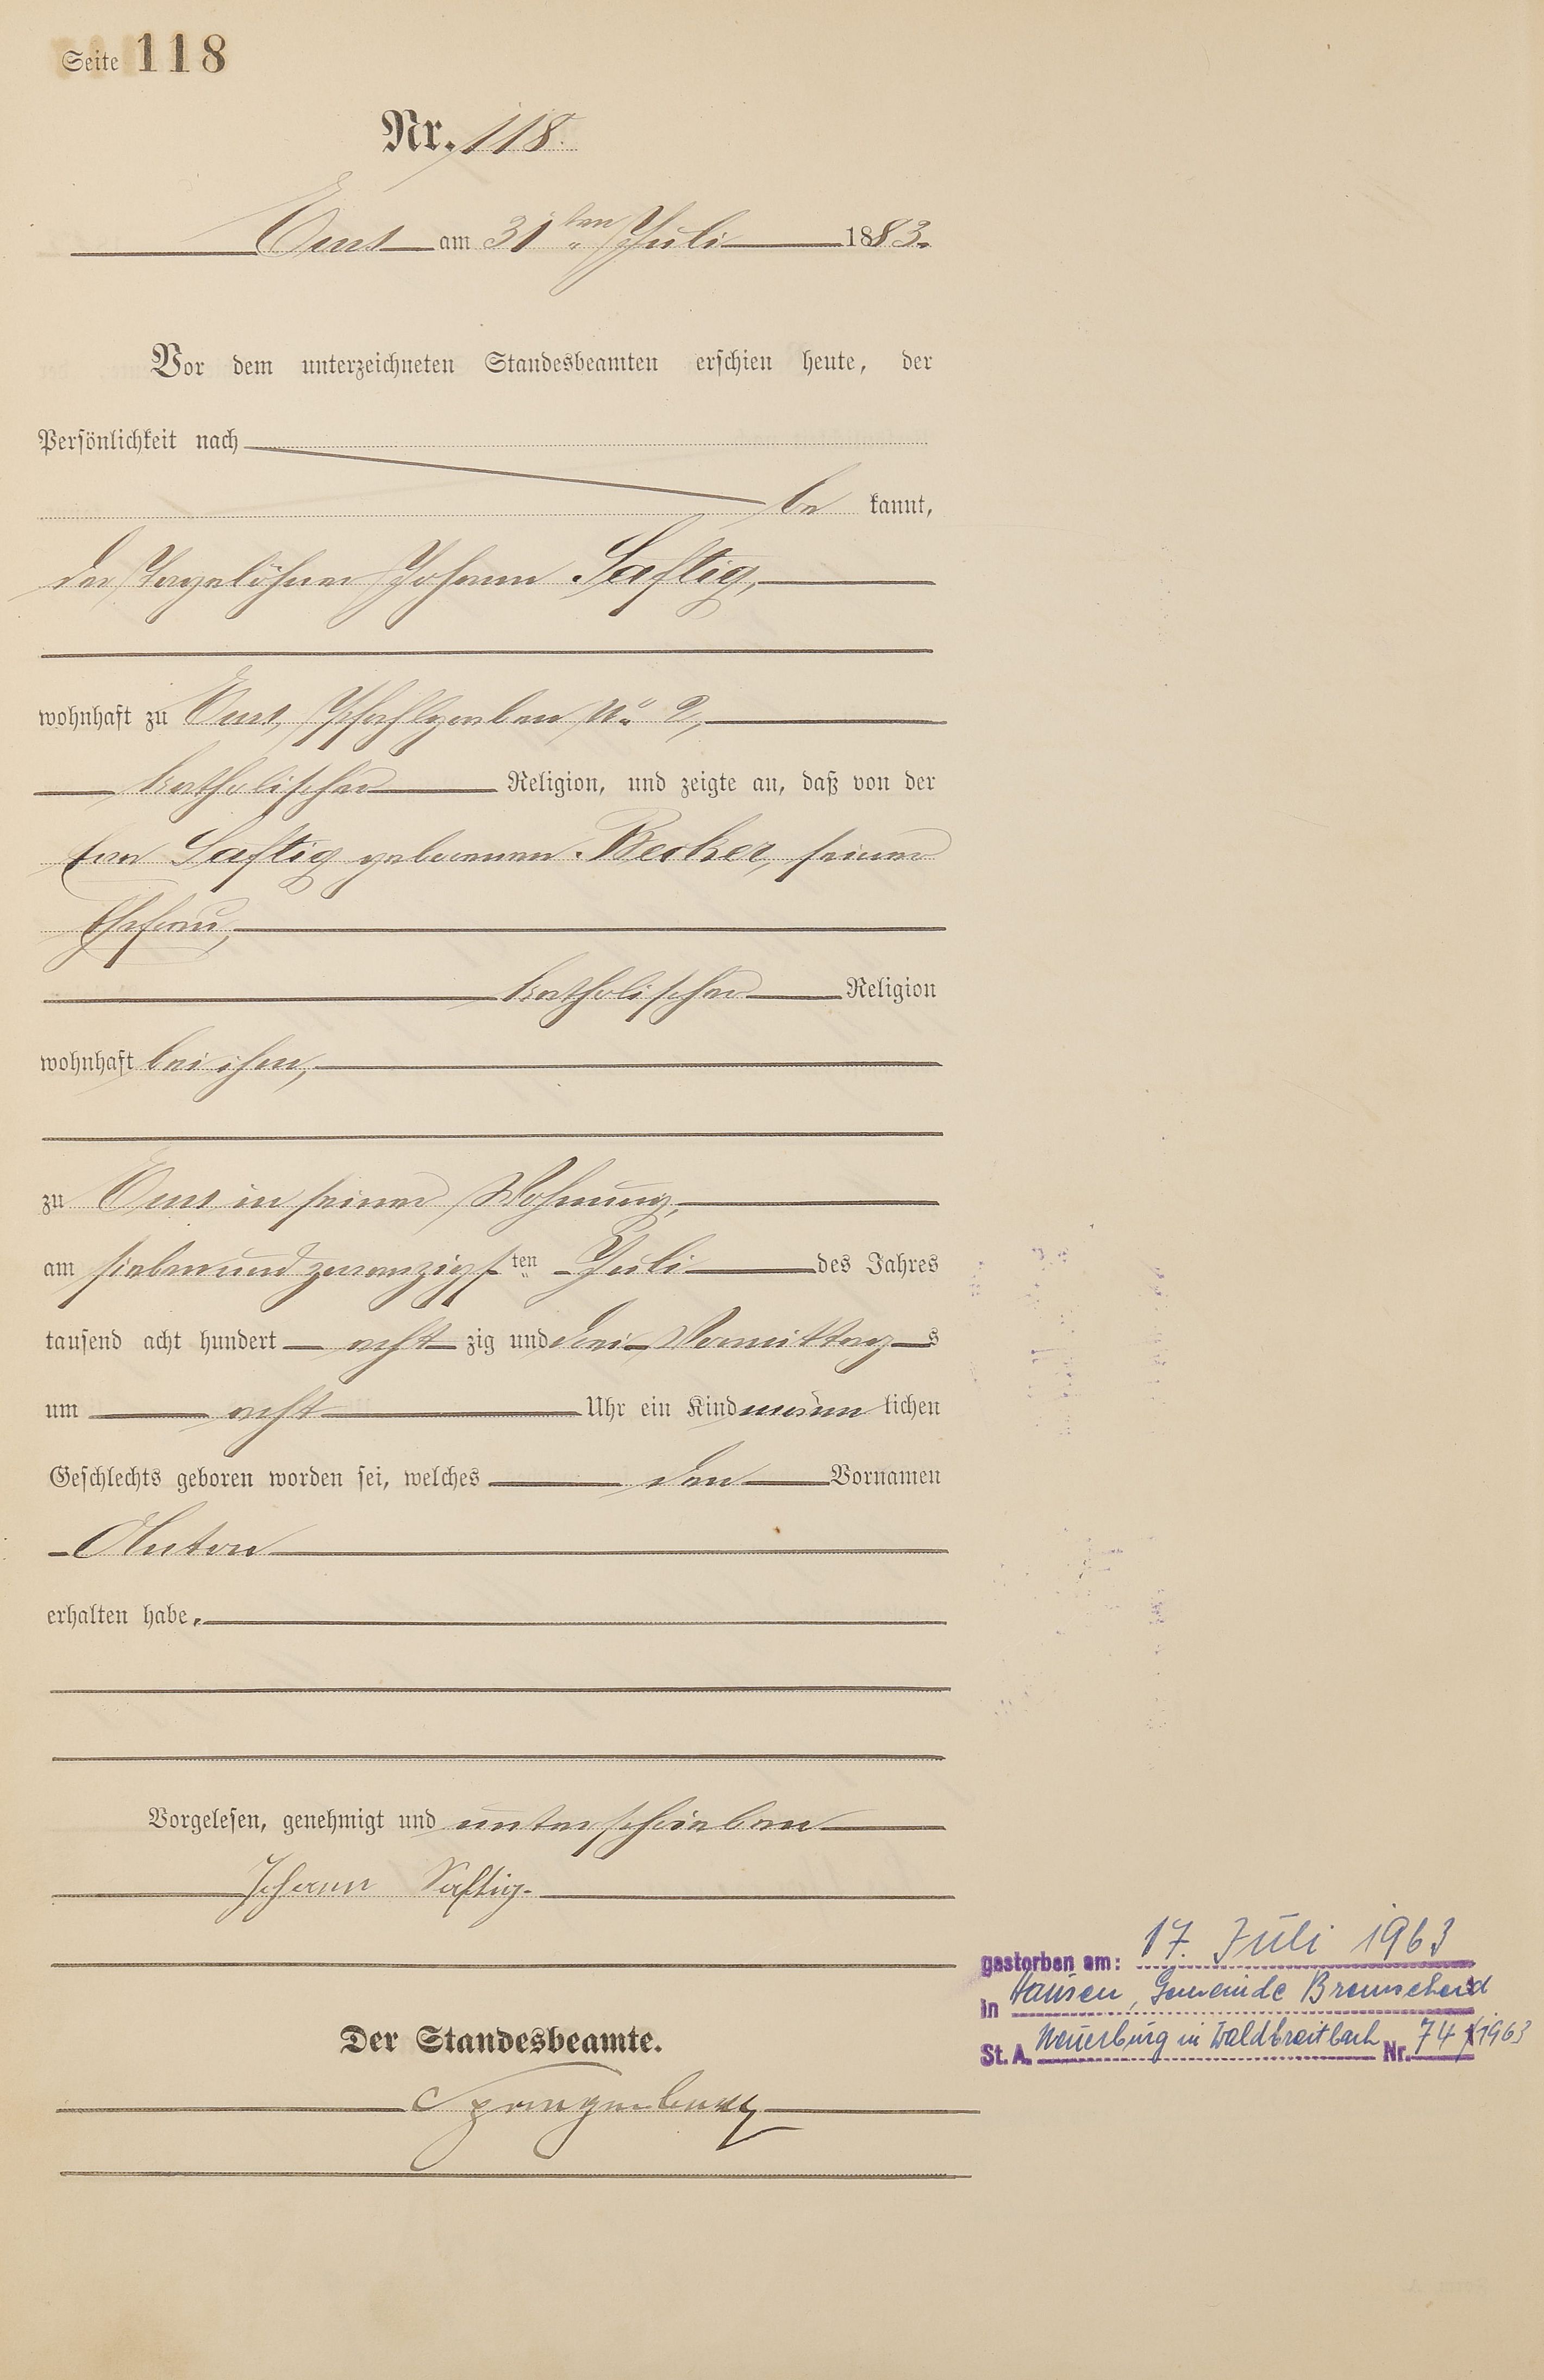 Seite 118
Nr. 118.
Ems am 31ten Juli 1883.
Vor dem unterzeichneten Standesbeamten erschien heute, der
Persönlichkeit nach
be kannt,
der Tagelöhner Johann Saftig,
wohnhaft zu Ems, Pfahlgraben No 2,
katholischer Religion, und zeigte an, daß von der
Saftig geborenen Becker, seiner
Ehefrau,
katholischer Religion
wohnhaft bei ihm,
zu Ems in seiner Wohnung,
am siebenundzwanzigsten Juli des Jahres
tausend acht hundert acht zig und drei Vormittags
um acht Uhr ein Kind männ lichen
Geschlechts geboren worden sei, welches den Vornamen
Anton
erhalten habe.
Vorgelesen, genehmigt und unterschrieben
Johann Saftig.
Der Standesbeamte.
Spangenberg
gestorben am: 17. Juli 1963
in Hausen, Gemeinde Bremscheid
St. A. Neuerburg in Waldbreitbach Nr. 74/1963